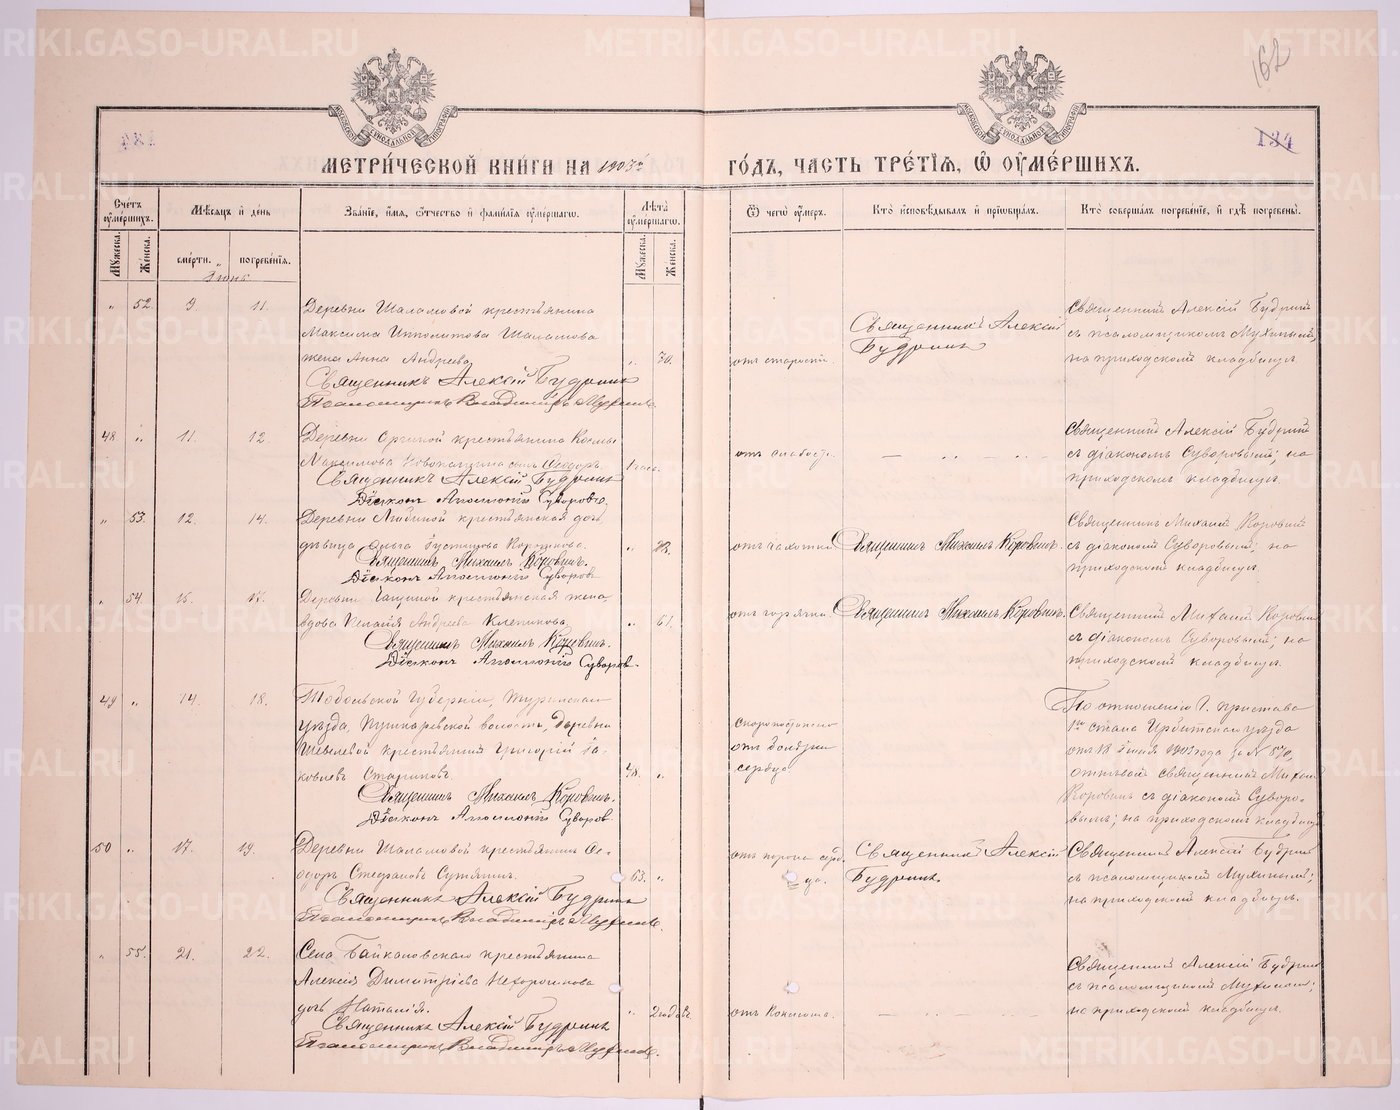 METRIKI.GASO-URAL.RU
162
134
МОСКОВСКОЙ СѴНОДАЛЬНОЙ ТИПОГРАФІИ
МЕТРИ́ЧЕСКОЙ КНИ́ГИ НА 1903й ГО́ДЪ, ЧАСТЬ ТРЕ́ТІѦ, Ѡ ОУМЕ́РШИХЪ.
Сче́тъ оуме́ршихъ.
Мꙋжеска.
Же́нска.
Мѣсѧцъ и де́нь
сме́рти.
погребе́нїѧ.
Іюнь
Зва́нїе, и́мѧ, ѻ҆́тчество и фами́лїѧ оуме́ршагѡ.
Лѣ́та оуме́ршагѡ.
Мꙋжеска.
Же́нска.
Ѿ чегѡ̀ оу́меръ.
Кто̀ и҆сповѣ́дывалъ и прїѡбща́лъ.
Кто̀ соверша́лъ погребе́нїе, и гдѣ̀ погребены̀.
" 52. 9. 11.
Деревни Шаламовой крестьянина
Максима Ипполитова Шаламова
жена Анна Андреева
" 70.
Священникъ Алексій Будринъ
Псаломщикъ Владиміръ Мухинъ
отъ старости.
Священникъ Алексій
Будринъ
Священникъ Алексій Будринъ
съ псаломщикомъ Мухинымъ;
на приходскомъ кладбищѣ.
48 " 11. 12.
Деревни крестьянина Космы
Максимова сынъ Ѳеодоръ
Священникъ Алексій Будринъ
Діаконъ Аполлоній Суворовъ
отъ слабости.
Священникъ Алексій Будринъ
съ діакономъ Суворовымъ; на
приходскомъ кладбищѣ.
" 53. 12. 14.
Деревни Любиной крестьянская доч
дѣвица Ольга
Священникъ Михаилъ Коровинъ.
Діаконъ Аполлоній Суворовъ
отъ чахотки
Священникъ Михаилъ Коровинъ.
Священникъ Михаилъ Коровинъ
съ діакономъ Суворовымъ; на
приходскомъ кладбищѣ.
" 54. 15. 17.
Деревни крестьянская жена,
вдова Андреева
" 61.
Священникъ Михаилъ Коровинъ.
Діаконъ Аполлоній Суворовъ.
отъ горячки
Священникъ Михаилъ Коровинъ.
Священникъ Михаилъ Коровинъ
съ діакономъ Суворовымъ; на
приходскомъ кладбищѣ.
49 " 14. 18.
Тобольской губерніи, Туринскаго
уѣзда, Пушкаревской волости, деревни
крестьянинъ Григорій Іа-
ковлевъ Стариковъ.
48. "
Священникъ Михаилъ Коровинъ.
Діаконъ Аполлоній Суворовъ.
скоропостижно
отъ болѣзни
сердца
По отношенію Г. пристава
1го стана Ирбитскаго уѣзда
отъ 18 Іюня 1903 года за № 570,
отпѣвалъ священникъ Михаилъ
Коровинъ съ діакономъ Суворо-
вымъ; на приходскомъ кладбищѣ
50 " 17. 19.
Деревни Шаламовой крестьянинъ Ѳе-
одоръ Стефановъ Сутягинъ.
63. "
Священникъ Алексій Будринъ
Псаломщикъ Владиміръ Мухинъ.
отъ порока серд-
ца.
Священникъ Алексій
Будринъ.
Священникъ Алексій Будринъ
съ псаломщикомъ Мухинымъ;
на приходскомъ кладбищѣ.
" 55. 21. 22.
Села Байкаловскаго крестьянина
Алексія Димитріева Нехорошкова
дочь Наталія.
" 2 годовъ.
Священникъ Алексій Будринъ
Псаломщикъ Владиміръ Мухинъ.
отъ коклюша.
Священникъ Алексій Будринъ
съ псаломщикомъ Мухинымъ;
на приходскомъ кладбищѣ.